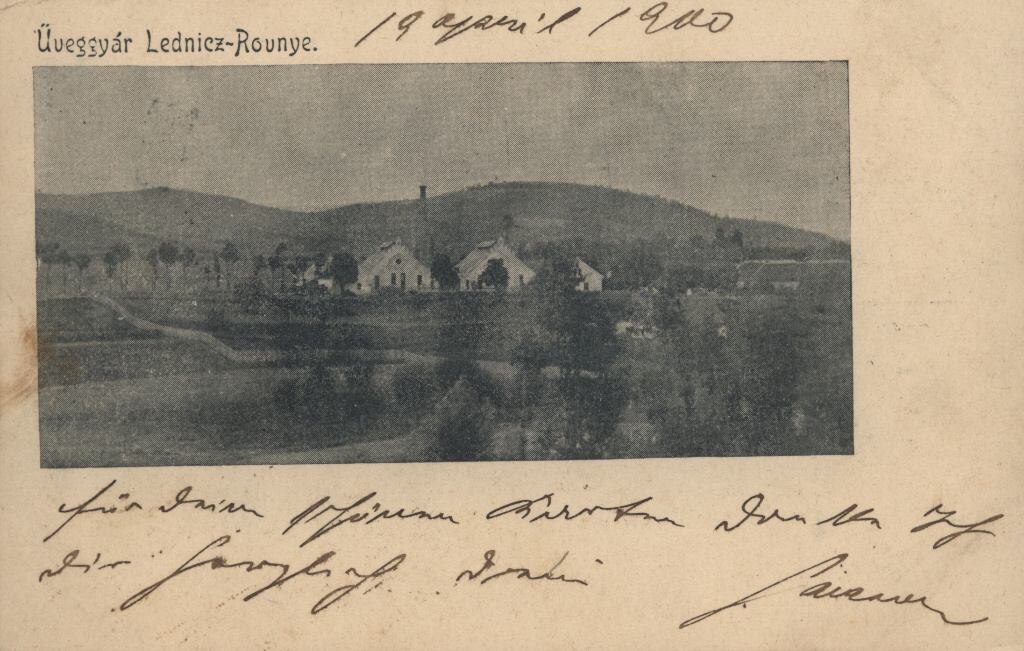 Üveggyár Lednicz-Rovnye.
19 april 1900
für deine schönen Karten danke Ich
dir herzlich. deine